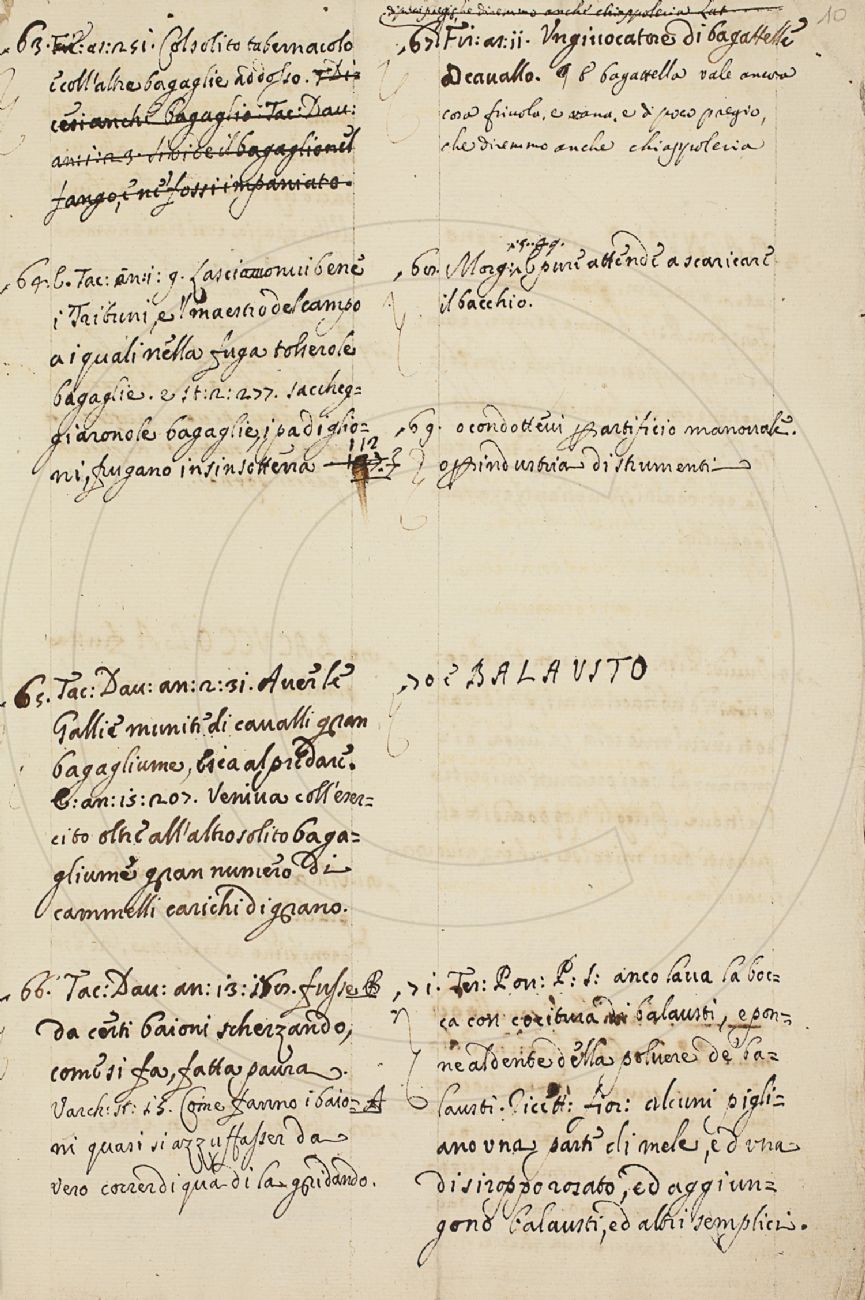 63. Fir: as: 251. Col solito tabernacolo
è coll'altre bagaglie addosso. Di=
cesi anche bagaglio. Tac: Dav:
an: 1: 23. il bagaglio nel
fango, e ne' fossi impaniato.
64. E. Tac: an: 1: 9. Lasciaronvi bene
i Tribuni, e 'l maestro del campo
a i quali nella fuga tolser le
bagaglie. e st: 2: 277. saccheg=
giaron le bagaglie, i padiglio=
ni, frugano insin sotterra 112
65. Tac: Dav: an: 2: 31. Aver le
Gallie munite di cavalli gran
bagagliume, esca al predare.
E: an: 15: 207. Veniva coll'eser=
cito oltre all'altro solito baga=
gliume gran numero di
cammelli carichi di grano.
66. Tac: Dav: an: 13: fusse B
da certi baioni scherzando,
come si fa, fatta paura.
Varch: st: 15. Come fanno i baio= A
ni quasi si azzuffasser da
vero correr di qua di la gridando.
di poco pregio, che diremmo anche chiappoleria Lat
10
67. Fir: as: 11. Un giuocatore di bagattelle
a cavallo. ¶ E bagattella vale ancora
cosa frivola, e vana, e di poco pregio,
che diremmo anche chiappoleria
68. Morg: E pure attende a scaricare
il bacchio.
69. o condottevi per artificio manovale.
o per industria di strumenti
70 è BALAUSTO
71. Tes: Pov: P: S: anco lava la boc=
ca con cocitura di balausti, e pon=
ne al dente della polvere de' ba=
lausti. Ricett: Fior: alcuni pigli=
ano una parte di mele, ed una
di siroppo rosato, ed aggiun=
gono balausti, ed altri semplici.